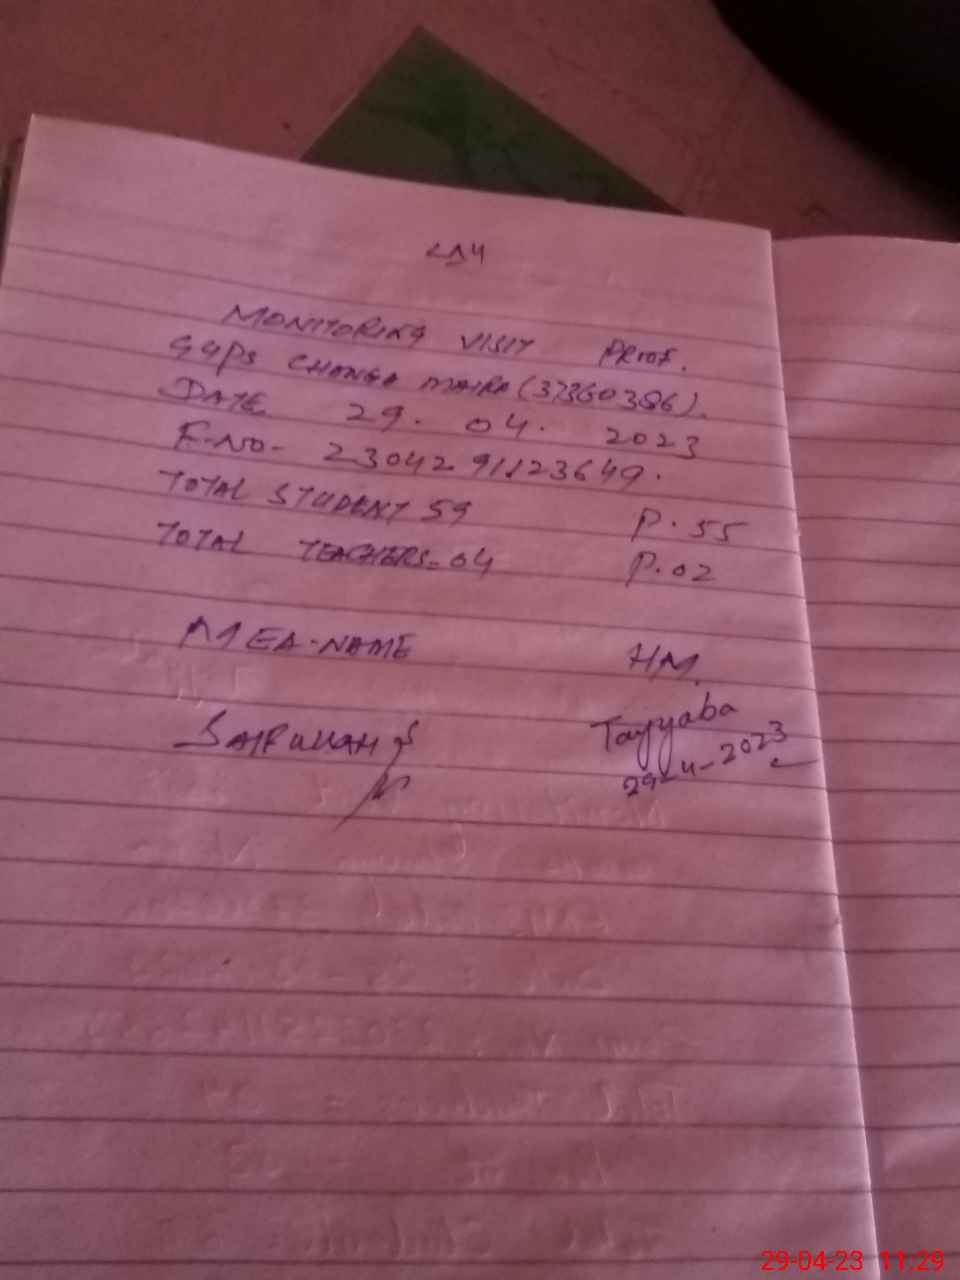 MONITORING VISIT PROOF.
GGPS CHANGA MAIRA (37360386).
DATE 29. 04. 2023
F-NO- 2304291123649.
TOTAL STUDENT 59 P. 55
TOTAL TEACHERS=04 P.02
MEA-NAME HM.
SAIFULLAH Tayyaba
29-4-2023
29-04-23 11:29